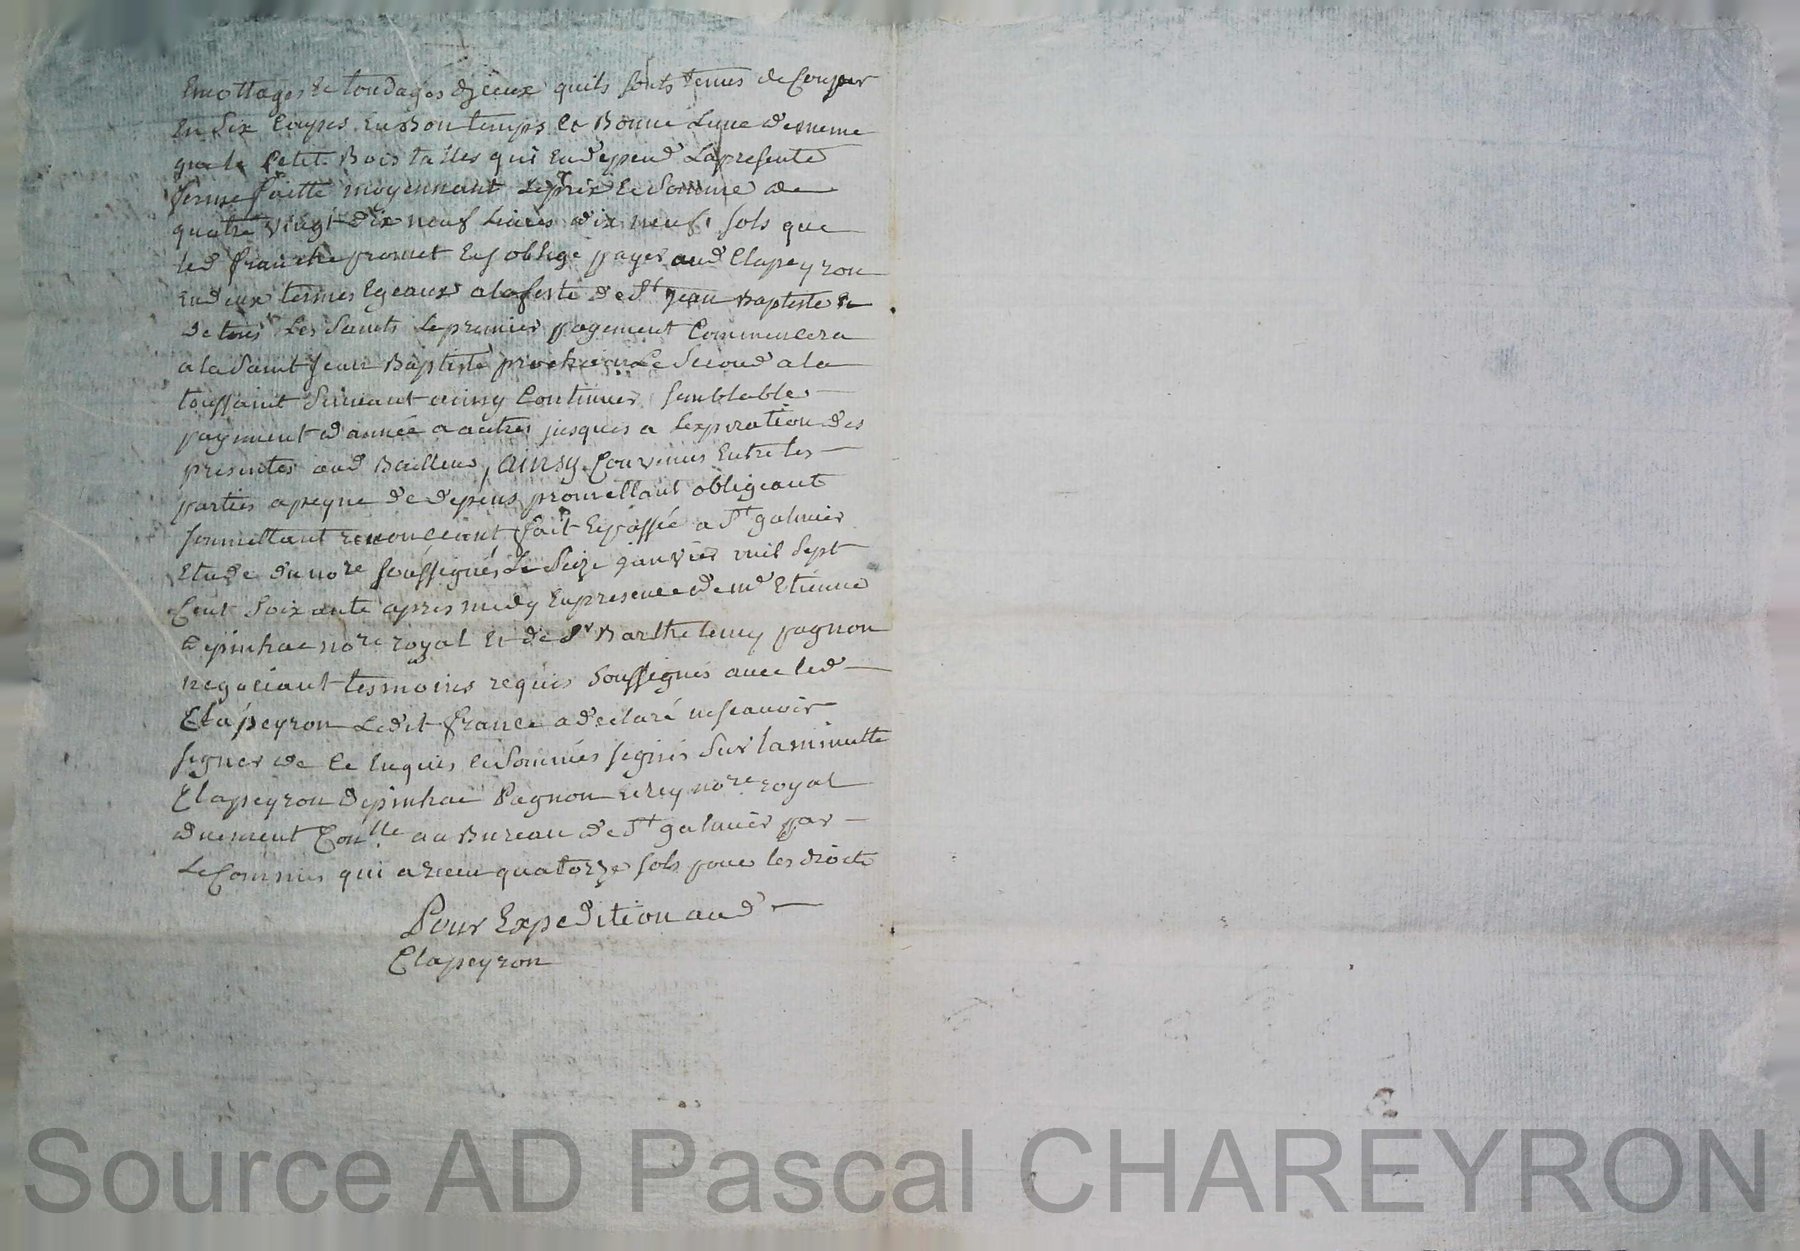 Emottages et tondages dyceux quils sonts tenus de Couper
En Six Coupes En Bon temps Et Bonne Lune de meme
que le petit Bois tailles qui En depend La presente
ferme faitte moyennant Le prix Et Somme de
quatre vingt dix neuf Livres dix neuf sols que
led france promet Et s oblige payer aud Clapeyron
En deux termes Egeaux a la feste de St Jean Baptiste Et
de tous Les Saints Le premier payement Commencera
a la Saint Jean Baptiste prochain Le Second a la
toussaint Suivant ainsy Continuer semblable
payement d année a autres jusques a Lexpiration des
presentes aud Bailleur, ainsy Convenus Entre les
parties a peyne de depens promettant obligeant
soumettant renonceant fait Et passée a St galmier
Etude du nore soussignés Le Seize janvier mil Sept
Cent Soixante apres midy En presence de me Etienne
depinhac nore royal Et de Sr Barthelemy pagnon
negociant tesmoins requis Soussignés avec led
Clapeyron Ledit france a declaré ne scavoir
signer de Ce Enquis Et Sommés signés Sur la minutte
Clapeyron Depinhac Pagnon nore royal
duement Conlle au Bureau de St galmier par
Le Commis qui a receu quatorze sols pour les droits
Pour Expedition aud
Clapeyron
Source AD Pascal CHAREYRON